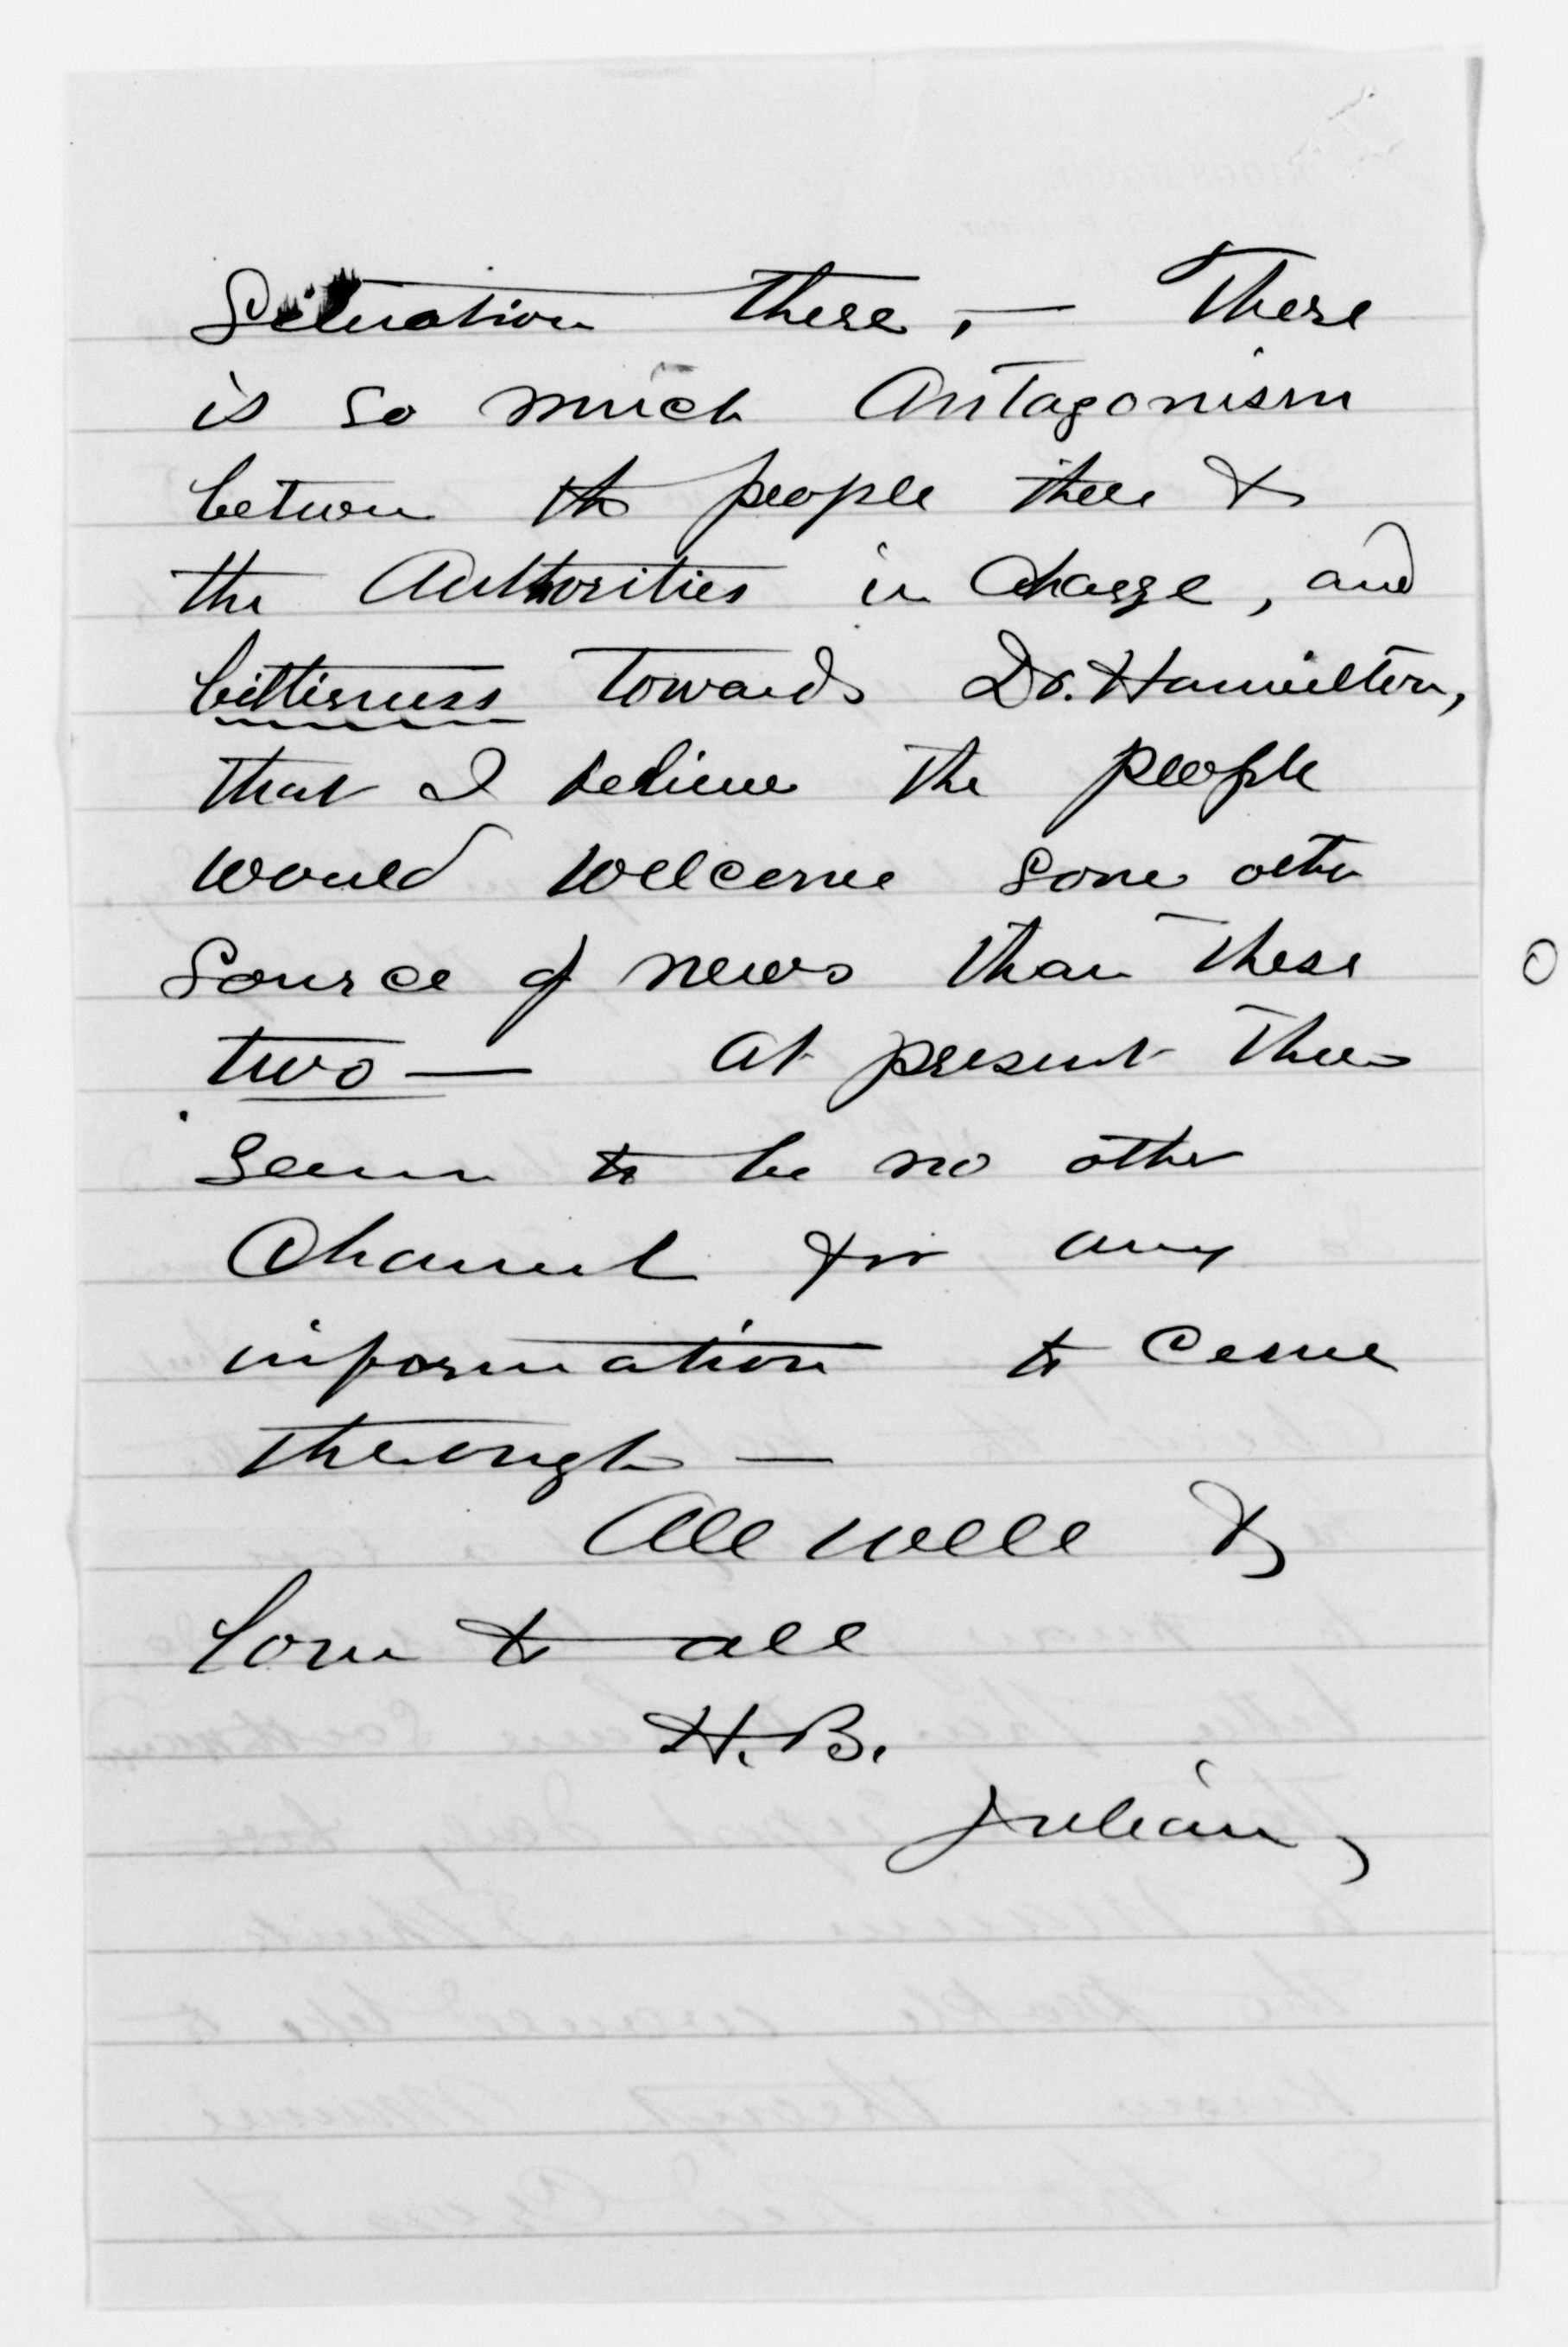 Situation there, — There
is so much Antagonism
between the people there &
the Authorities in Charge, and
bitterness towards Dr. Hamilton,
that I believe the people
would welcome some other
source of news than these
two — At present there
seems to be no other
Channel for any
information to come
through —
All well &
love to all
H. B.
Julian